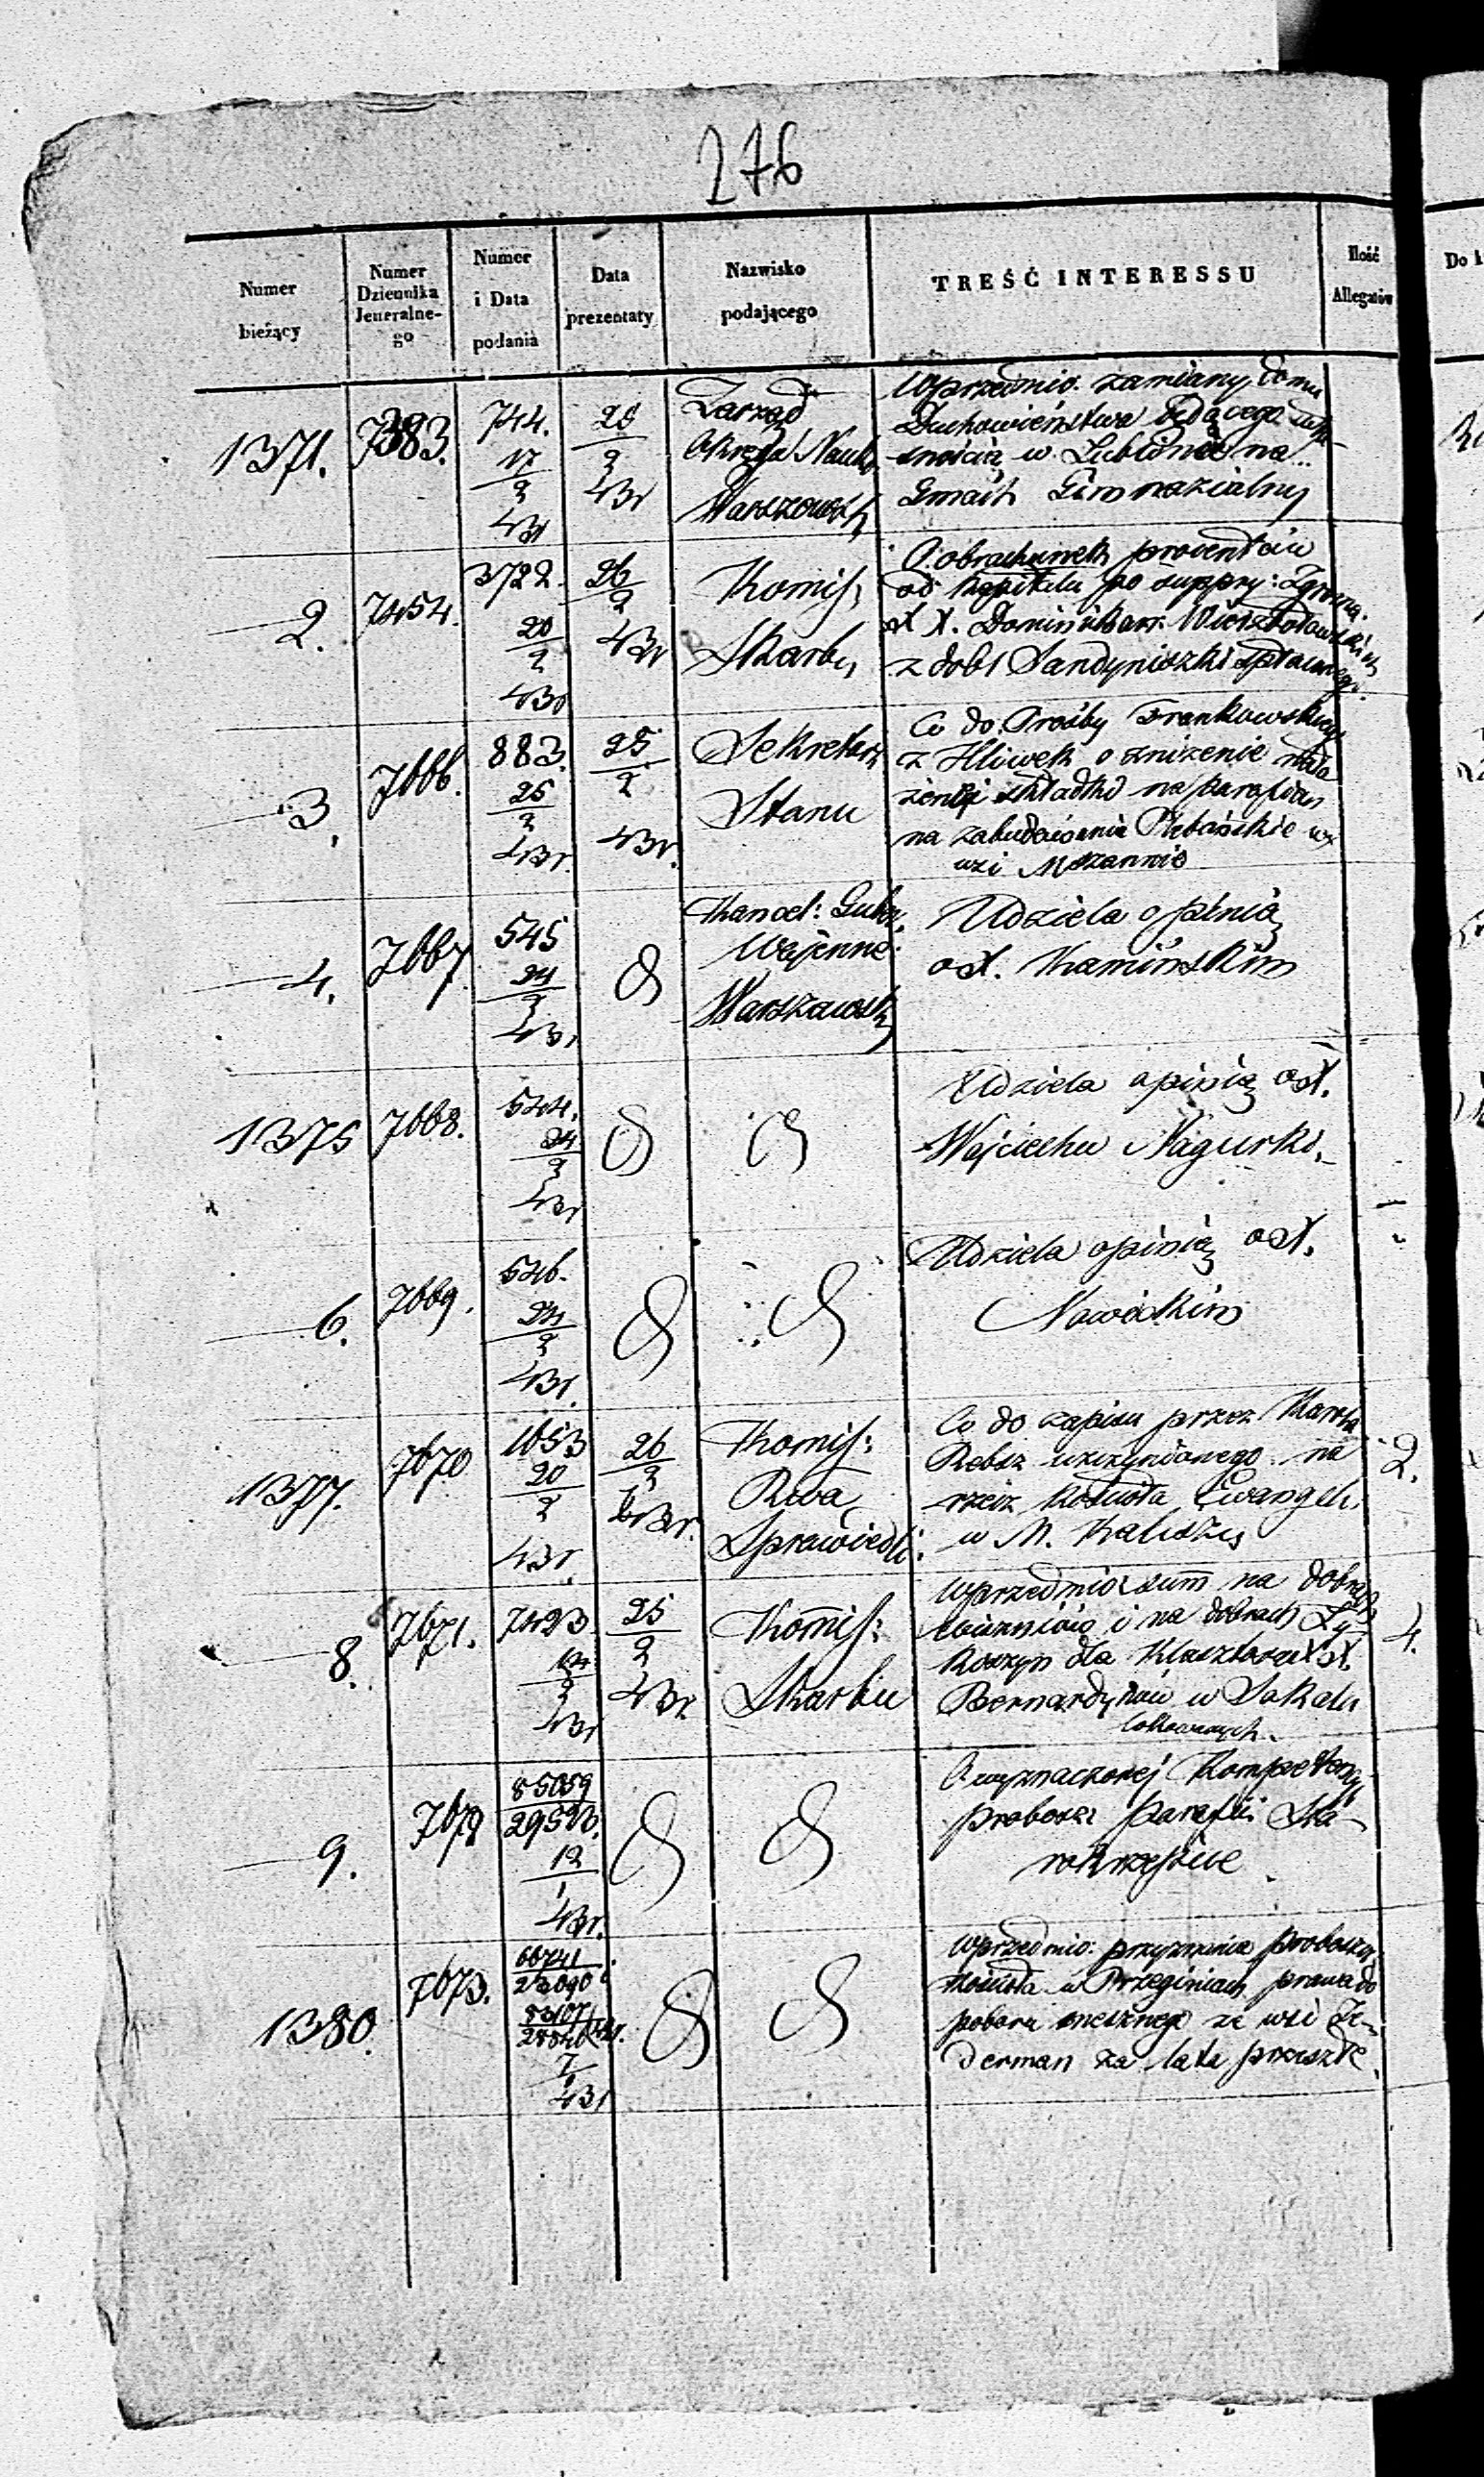 276
Numer bieżący
Numer Dziennika Jeneralne-go
Numer i Data podania
Data prezentaty
Nazwisko podającego
TREŚĆ INTERESSU
Ilość Allegatów
Do
1371. 7383. 744. 17/2 43r 25/2 43r
Zarząd
Okręgu Nauko
Warszawsk
Wprzedmio. zamiany domu
Duchowieństwa będącego
snością w Lublinie na
Gmach Gimnazialny
2. 7454. 3722. 20/2 43r 26/2 43r
Komis:
Skarbu
Obrachunek procentów
od Kapitału po suppry: Zgroma.
XX. Dominikan: Wierzbołowskich
z dobr Sandyniszki
3. 7666. 883. 25/2 43r. 25/2 43r.
Sekretarz
Stanu
Co do Prośby Frankowskiego
z Hliwek o zniżenie nało
żenej składki na parafian
na zabudowania Plebańskie we
wsi Mszannie
4. 7667. 545 24/2 43r
Kancel: Guber.
Wojenne:
Warszawsk
Udziela opinią
o X. Kamińskim
1375 7668. 544. 24/2 43r
Udziela opinią o X.
Wojciechu Nagurki.
6. 7669. 546. 24/2 43r.
Udziela opinią o X.
Nowickim
1377. 7670 1653 20/2 43r. 26/2 43r.
Komis:
Rwa
Sprawiedli:
Co do zapisu przez
Rebsz uczynionego na
rzecz Kościoła Ewangeli.
w M. Kaliszu
2.
8. 7671. 7423. 14/2 43r 25/2 43r
Komis:
Skarbu
Wprzedmio: sum na dobrach
i na dobrach Ły-
koszyn dla Klasztoru XX.
Bernardynów w Sokalu
lokowanych.
4.
9. 7672 85059/29523. 12/1 43r.
O wyznaczonej Kompetencyi
probosz: Parafii Sta-
rokrzepice
1380. 7673. 66741 53107 43r
Wprzedmio: przyznania proboszcz.
Kościoła w Przeginiach prawa do
poboru mesznego ze wsi Ze-
derman za lata przeszłe.